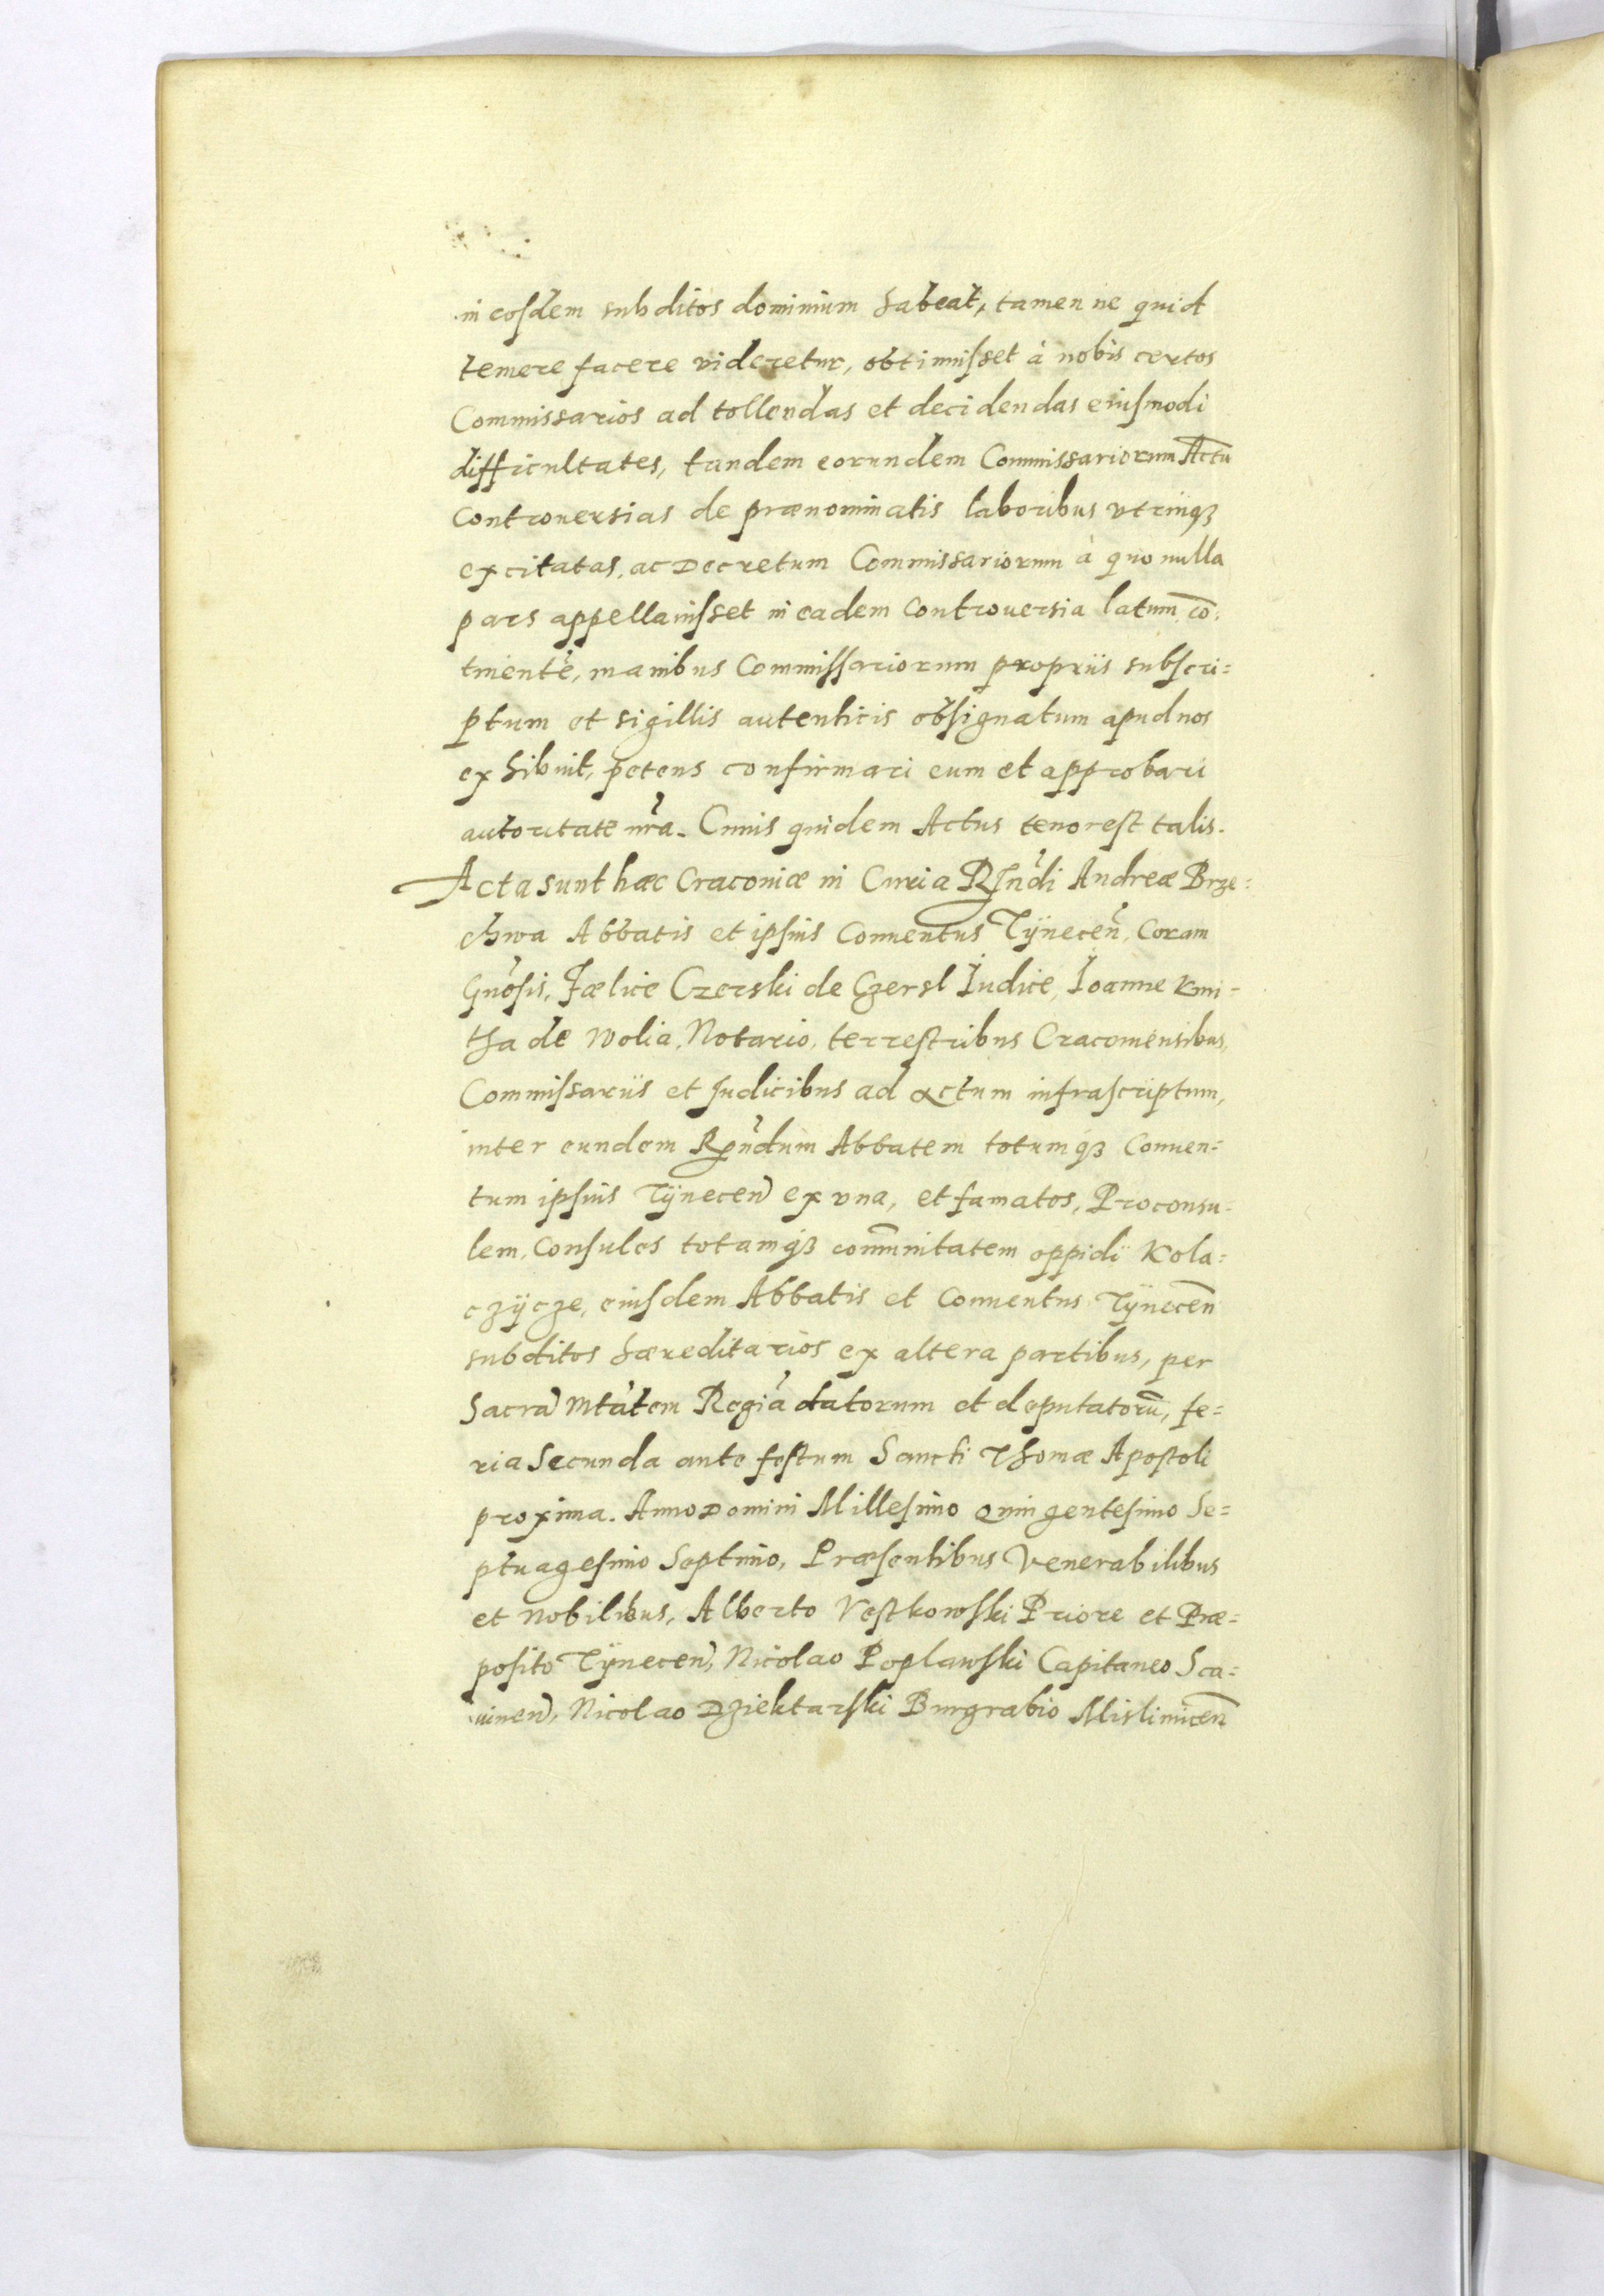 in eosdem subditos dominium habeat, tamen ne quid
temere facere videretur, obtinuisset à nobis certos
Commissarios ad tollendas et decidendas eiusmodi
difficultates, tandem eorundem Commissariorum Actũ
controuersias de prænominatis laboribus vtrinqȝ
excitatas, ac Decretum Commissariorum à quo nulla
pars appellauisset in eadem controuersia latum, cõ-
tinentẽ, manibus Commissariorum propriis subscri=
ptum et sigillis autenticis obsignatum apud nos
exhibuit, petens confirmari eum et approbari
autoritate nr̃a. Cuius quidem Actus tenor est talis.
Acta sunt hæc Cracoviæ in Curia Rṽndi Andreæ Brze=
chwa Abbatis et ipsius Conuentus Tÿnecen̄, Coram
Gñosis, Fælice Czerski de Czersl Iudice, Ioanne Kmi=
tha de Wolia, Notario, terrestribus Cracouiensibus,
Commissariis et Iudicibus ad actum infrascriptum,
inter eundem Rṽndum Abbatem totumqȝ Conuen=
tum ipsius Tÿnecen̄ ex vna, et famatos, Proconsu=
lem, Consules totamqȝ com̃unitatem oppidi Kola=
czÿcze, eiusdem Abbatis et Conuentus Tÿnecen̄
subditos hæreditarios ex altera partibus, per
Sacrã Mtãtem Regiã datorum et deputatorũ, fe=
ria Secunda ante festum Sancti Thomæ Apostoli
proxima. Anno Domini Millesimo Quingentesimo Se=
ptuagesimo Septimo, Præsentibus Venerabilibus
et Nobilibus, Alberto Vestkowski Priore et Præ=
posito Tÿnecen̄, Nicolao Poplawski Capitaneo Sca=
uinen̄, Nicolao Dziektarski Burgrabio Mislimicen̄